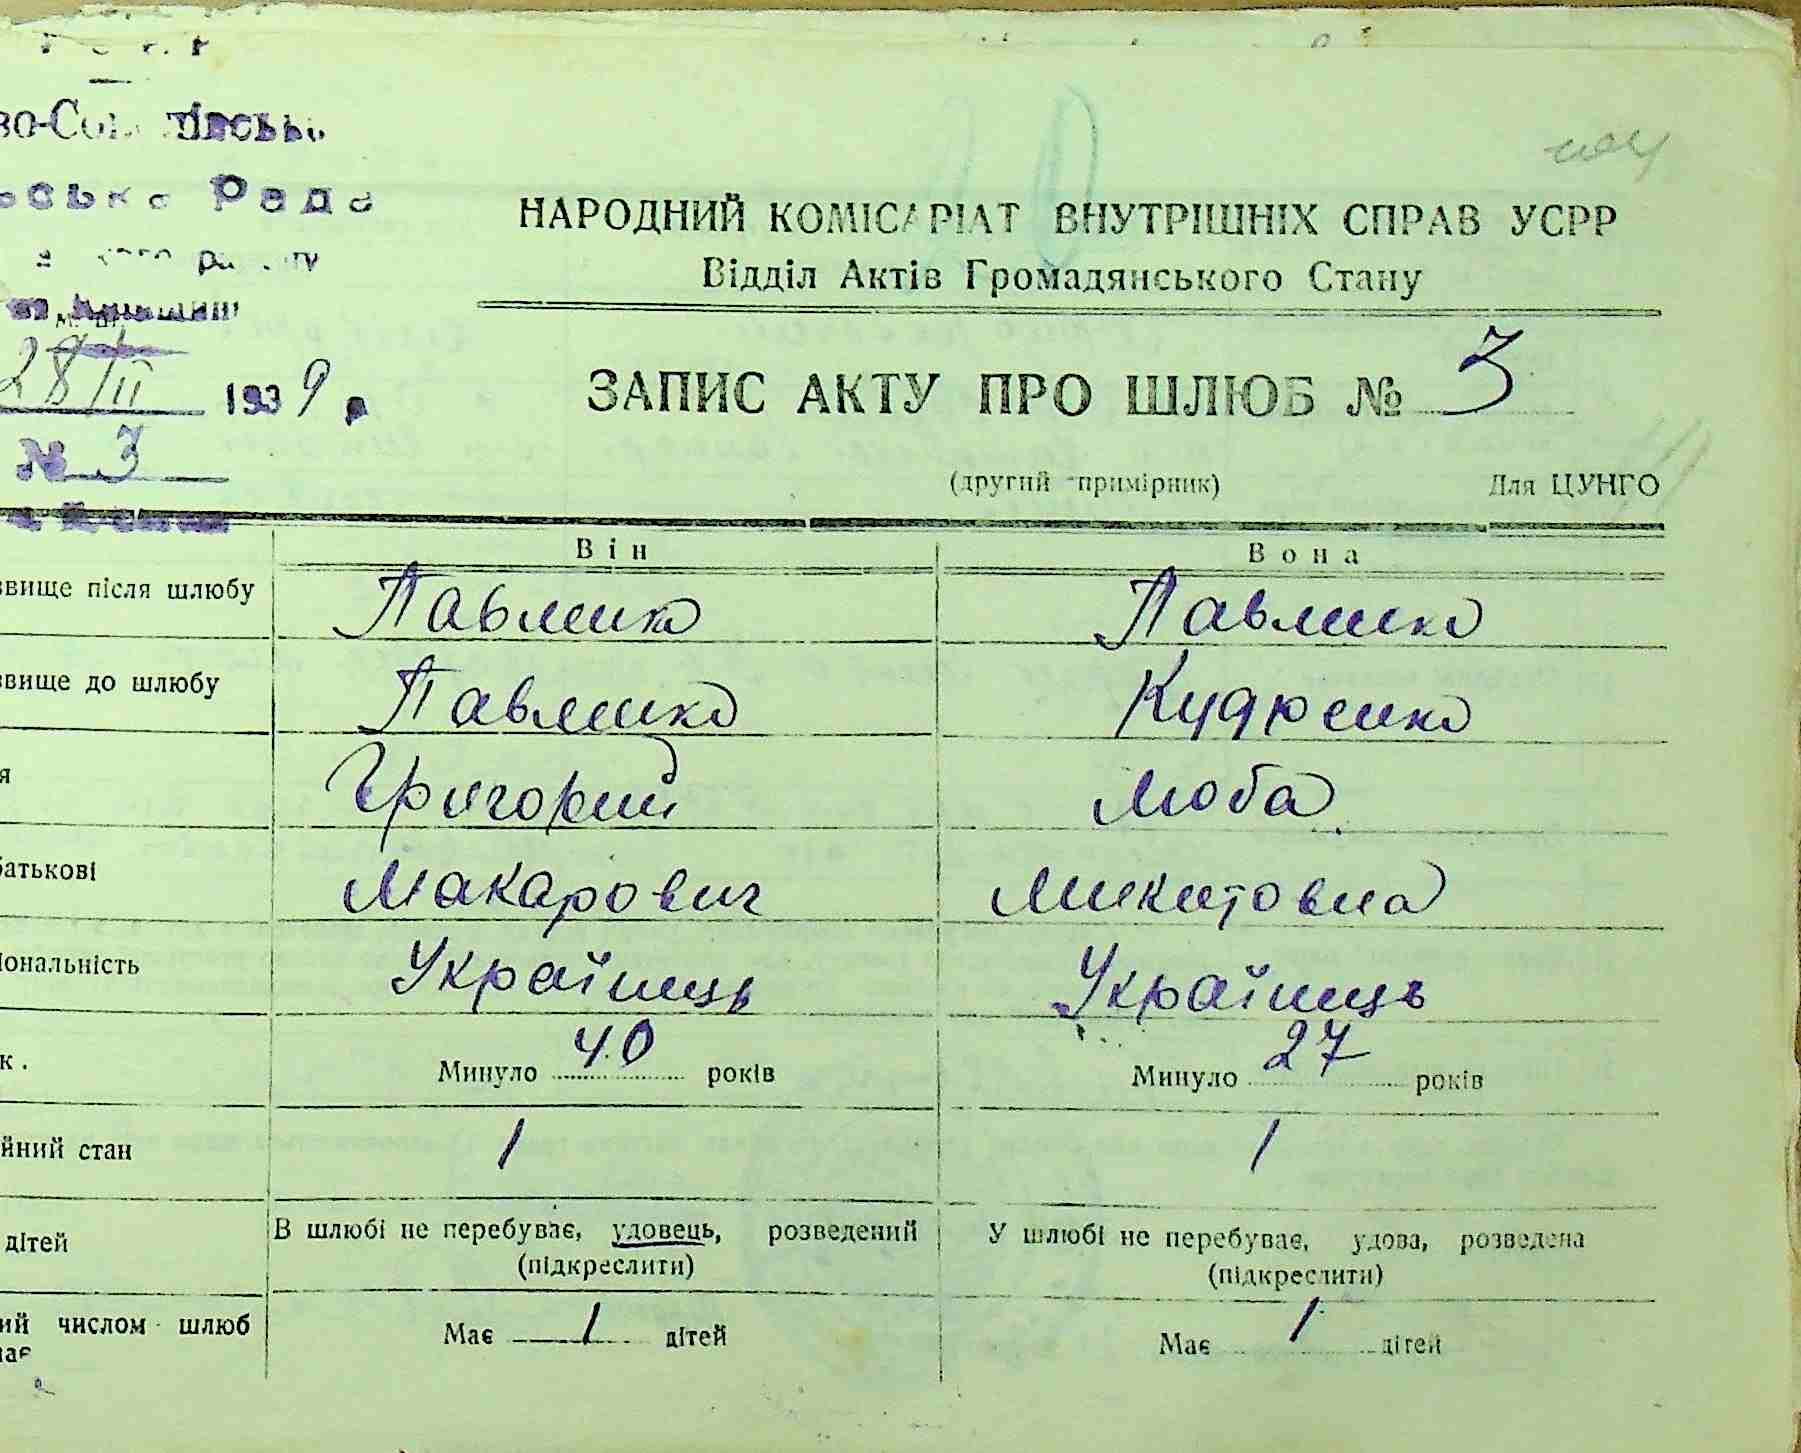 ська Рада
28/II 1939 р
№ 3
НАРОДНИЙ КОМІСАРІАТ ВНУТРІШНІХ СПРАВ УСРР
Відділ Актів Громадянського Стану
ЗАПИС АКТУ ПРО ШЛЮБ № 3
(другий примірник) Для ЦУНГО
Він Вона
звище після шлюбу Павленко Павленко
звище до шлюбу Павленко Кудренко
я Григорий Люба
батькові Макарович Микитовна
іональність Українець Українець
к. Минуло 40 років Минуло 27 років
йний стан 1 1
дітей В шлюбі не перебуває, удовець, розведений У шлюбі не перебуває, удова, розведена
(підкреслити) (підкреслити)
ий числом шлюб Має 1 дітей Має 1 дітей